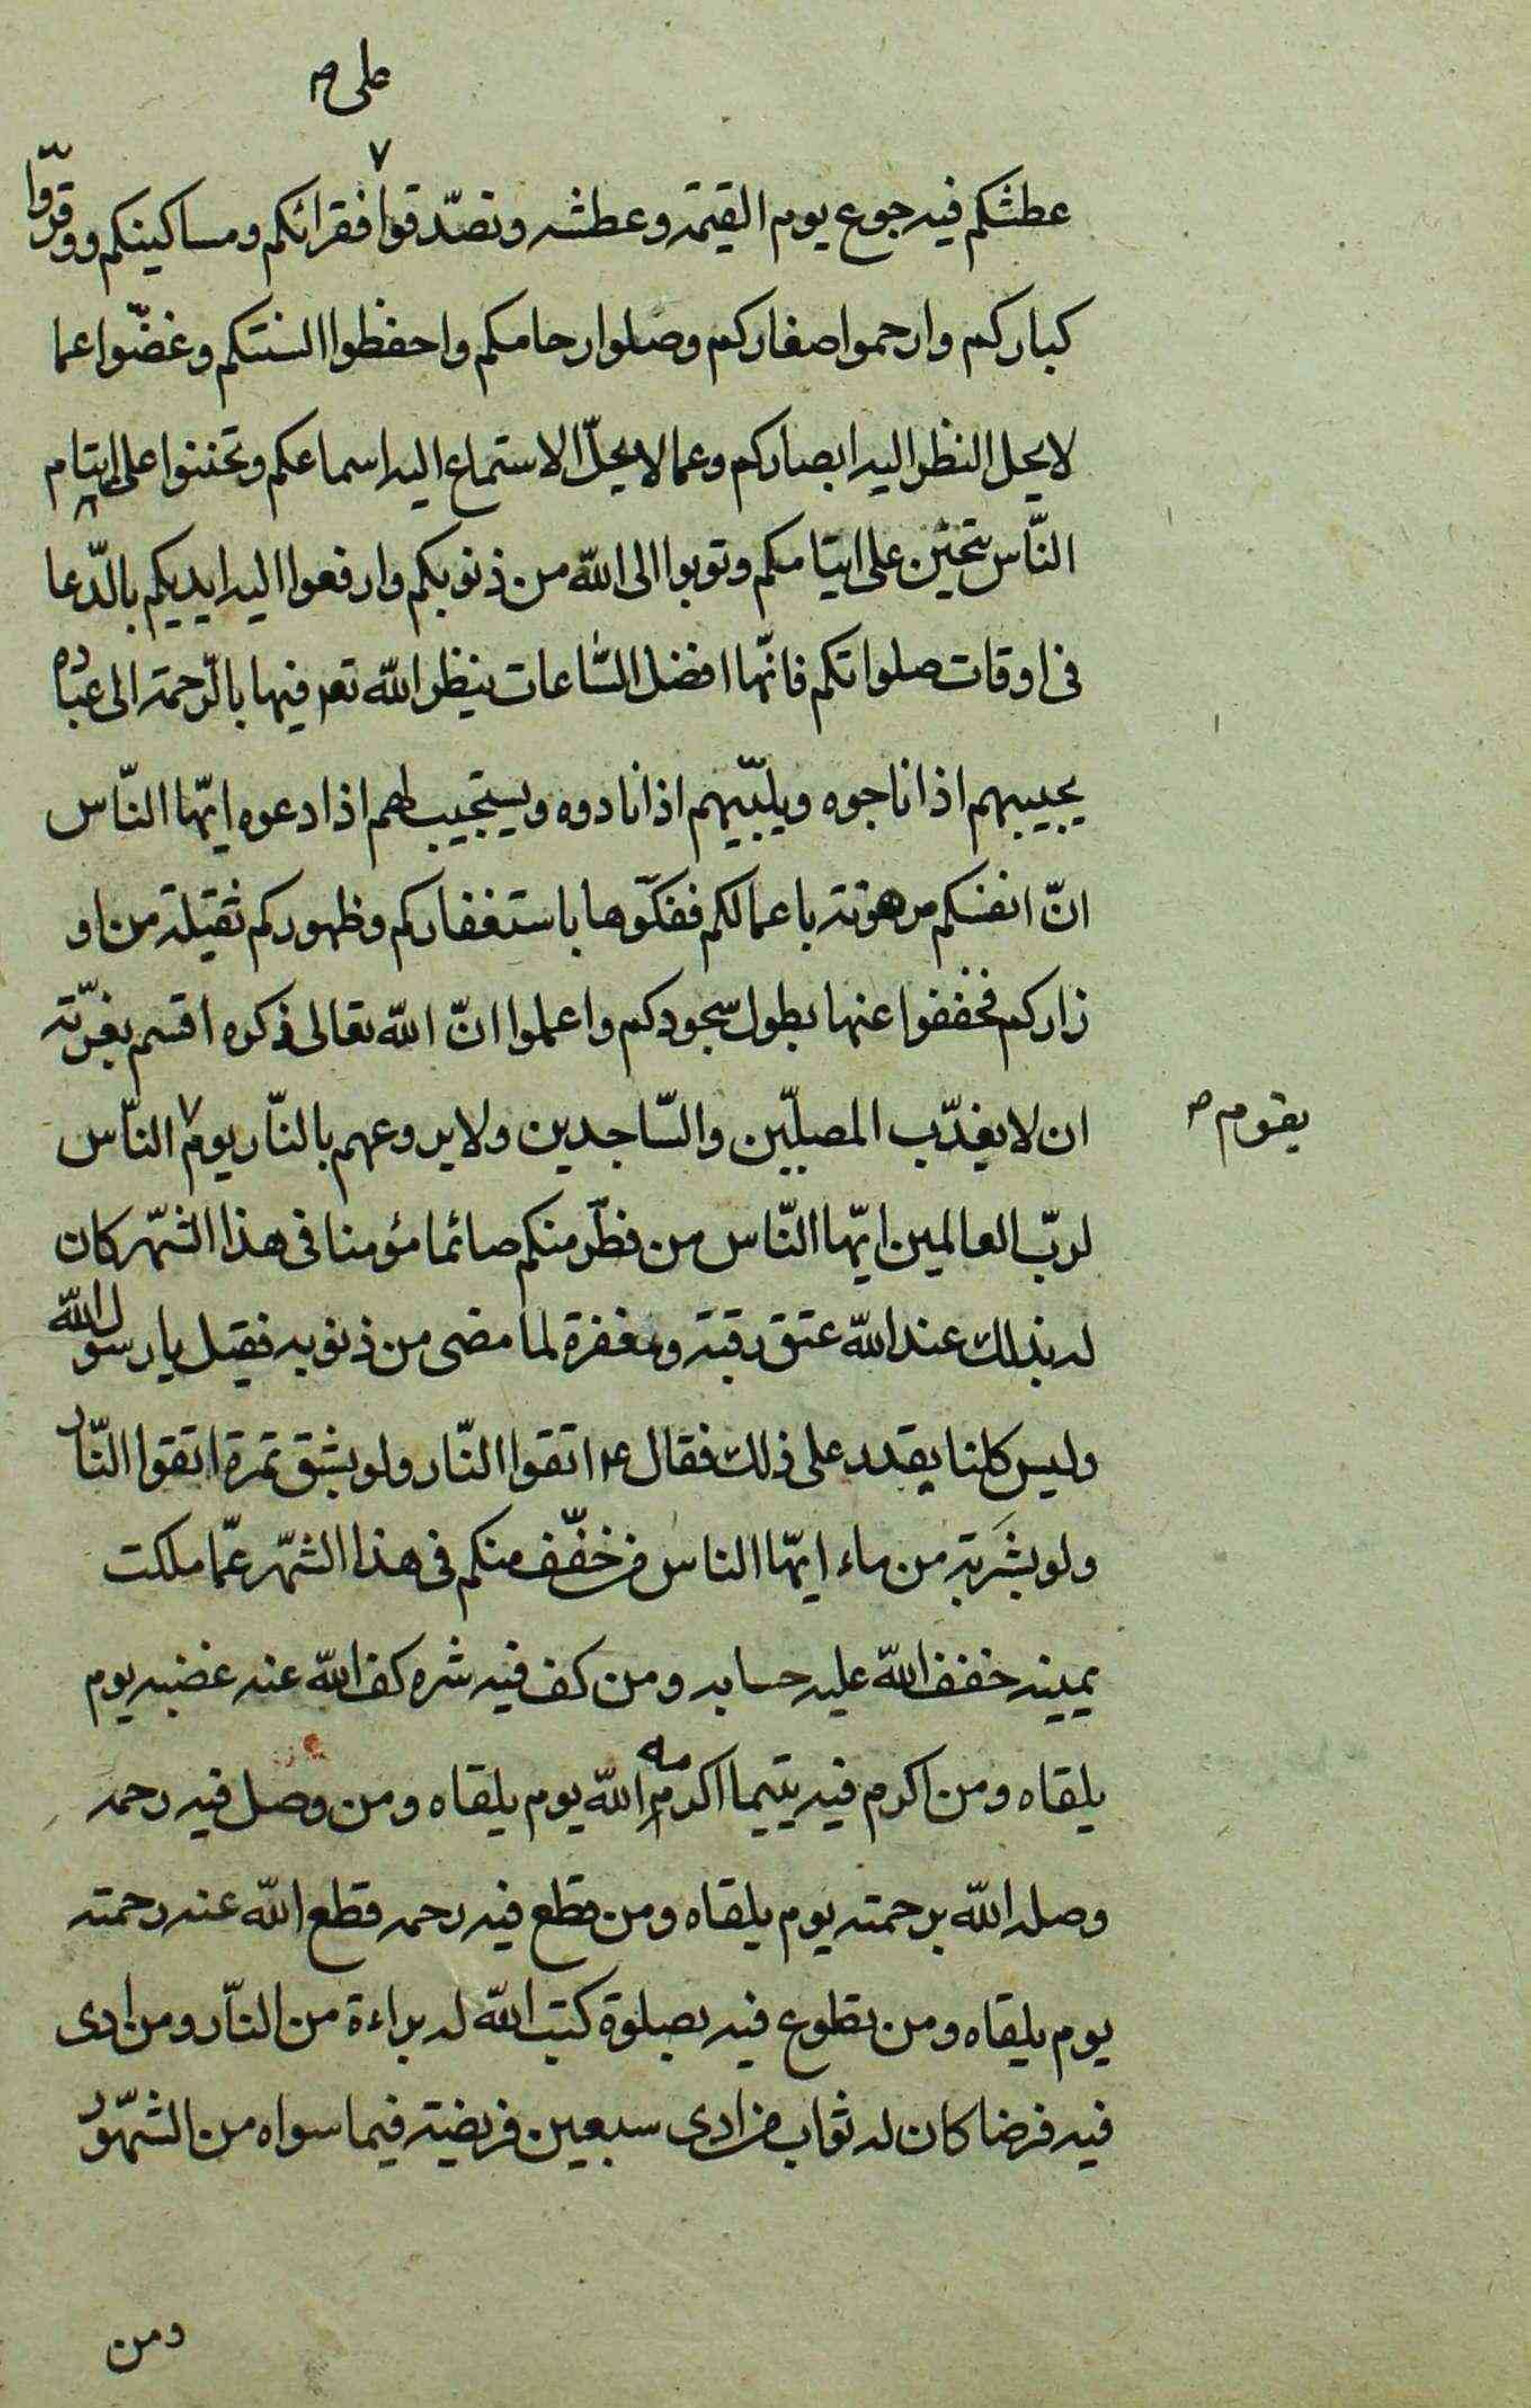 على ص
عطشكم فيه جوع يوم القيمة وعطشه وتصدّقوا ٧ فقرائكم ومساكينكم ووقّروا
كباركم وارحموا صغاركم وصلوا ارحامكم واحفظوا السنتكم وغضّوا عما
لا يحل النظر اليه ابصاركم وعما لا يحلّ الاستماع اليه اسماعكم وتحننوا على ايتام
النّاس يتحنّن على ايتامكم وتوبوا الى الله من ذنوبكم وارفعوا اليه ايديكم بالدّعا
فى اوقات صلواتكم فانّها افضل السّاعات ينظر الله تعم فيها بالرّحمة الى عباده
يجيبهم اذا ناجوه ويلبّيهم اذا نادوه ويستجيب لهم اذا دعوه ايّها النّاس
انّ انفسكم مرهونة باعمالكم ففكّوها باستغفاركم وظهوركم ثقيلة من او
زاركم فخففوا عنها بطول سجودكم واعلموا انّ الله تعالى ذكره اقسم بعزّته
ان لا يعذّب المصلّين والسّاجدين ولا يروعهم بالنّار يوم ٧ النّاس
يقوم ص
لربّ العالمين ايّها النّاس من فطّر منكم صائما مؤمنا فى هذا الشّهر كان
له بذلك عند الله عتق رقبة ومغفرة لما مضى من ذنوبه فقيل يا رسول الله
وليس كلنا يقدر على ذلك فقال ع اتقوا النّار ولو بشق تمرة اتقوا النّار
ولو بشَربة من ماء ايّها الناس من خفّف منكم فى هذا الشّهر عمّا ملكت
يمينه خفف الله عليه حسابه ومن كف فيه شره كف الله عنه غضبه يوم
يلقاه ومن اكرم فيه يتيما اكرمه الله يوم يلقاه ومن وصل فيه رحمه
وصله الله برحمته يوم يلقاه ومن قطع فيه رحمه قطع الله عنه رحمته
يوم يلقاه ومن تطوع فيه بصلوة كتب الله له براءة من النّار ومن ادى
فيه فرضا كان له ثواب من ادى سبعين فريضة فيما سواه من الشّهور
ومن